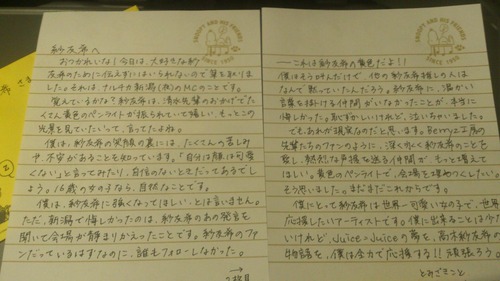 SNOOPY AND HIS FRIENDS
SINCE 1950
紗友希へ
おつかれいな！今日は、大好きな紗
友希のために伝えずにはいられないので筆を取りま
した。それは、ナルチカ新潟(夜)のMCのことです。
覚えているかな？紗友希は、清水先輩のおかげでた
くさん黄色のペンライトが振られていて嬉しい、もっとこの
光景を見ていたいって、言ってたよね。
僕は、紗友希の笑顔の裏には、たくさんの苦しみ
や、不安があることを知っています。「自分は顔は可愛
くない」と言ってみたり、自信のないときだってあるでし
ょう。16歳の女の子なら、自然なことです。
僕は、紗友希に強くなってほしい、とは言いません。
ただ、新潟で悔しかったのは、紗友希のあの発言を
聞いて会場が静まりかえったことです。紗友希のファ
ンだっているはずなのに、誰もフォローしなかった。
→
2枚目
SNOOPY AND HIS FRIENDS
SINCE 1950
――これは紗友希の黄色だよ！！
僕はそう叫んだけで、他の紗友希推しの人は
なんで黙っていたんだろう。紗友希に、温かい
言葉を掛ける仲間がいなかったことが、本当に
悔しかった。恥ずかしいけれど、泣いちゃいました。
でも、あれが現実なのだと思います。Berryz工房
の先輩たちのファンのように、深く永く紗友希のこと
を愛し、熱烈な声援を送る仲間が、もっと増えて
ほしい。黄色のペンライトで、会場を埋めつくしたい。
そう思いました。まだまだこれからです。
僕にとって紗友希は世界一可愛い女の子で、世界一
応援したいアーティストです。僕に出来ることは今
いけれど、Juice=Juiceの夢を、高木紗友希の
物語を、僕は全力で応援する！！頑張ろう。
とみざきこと